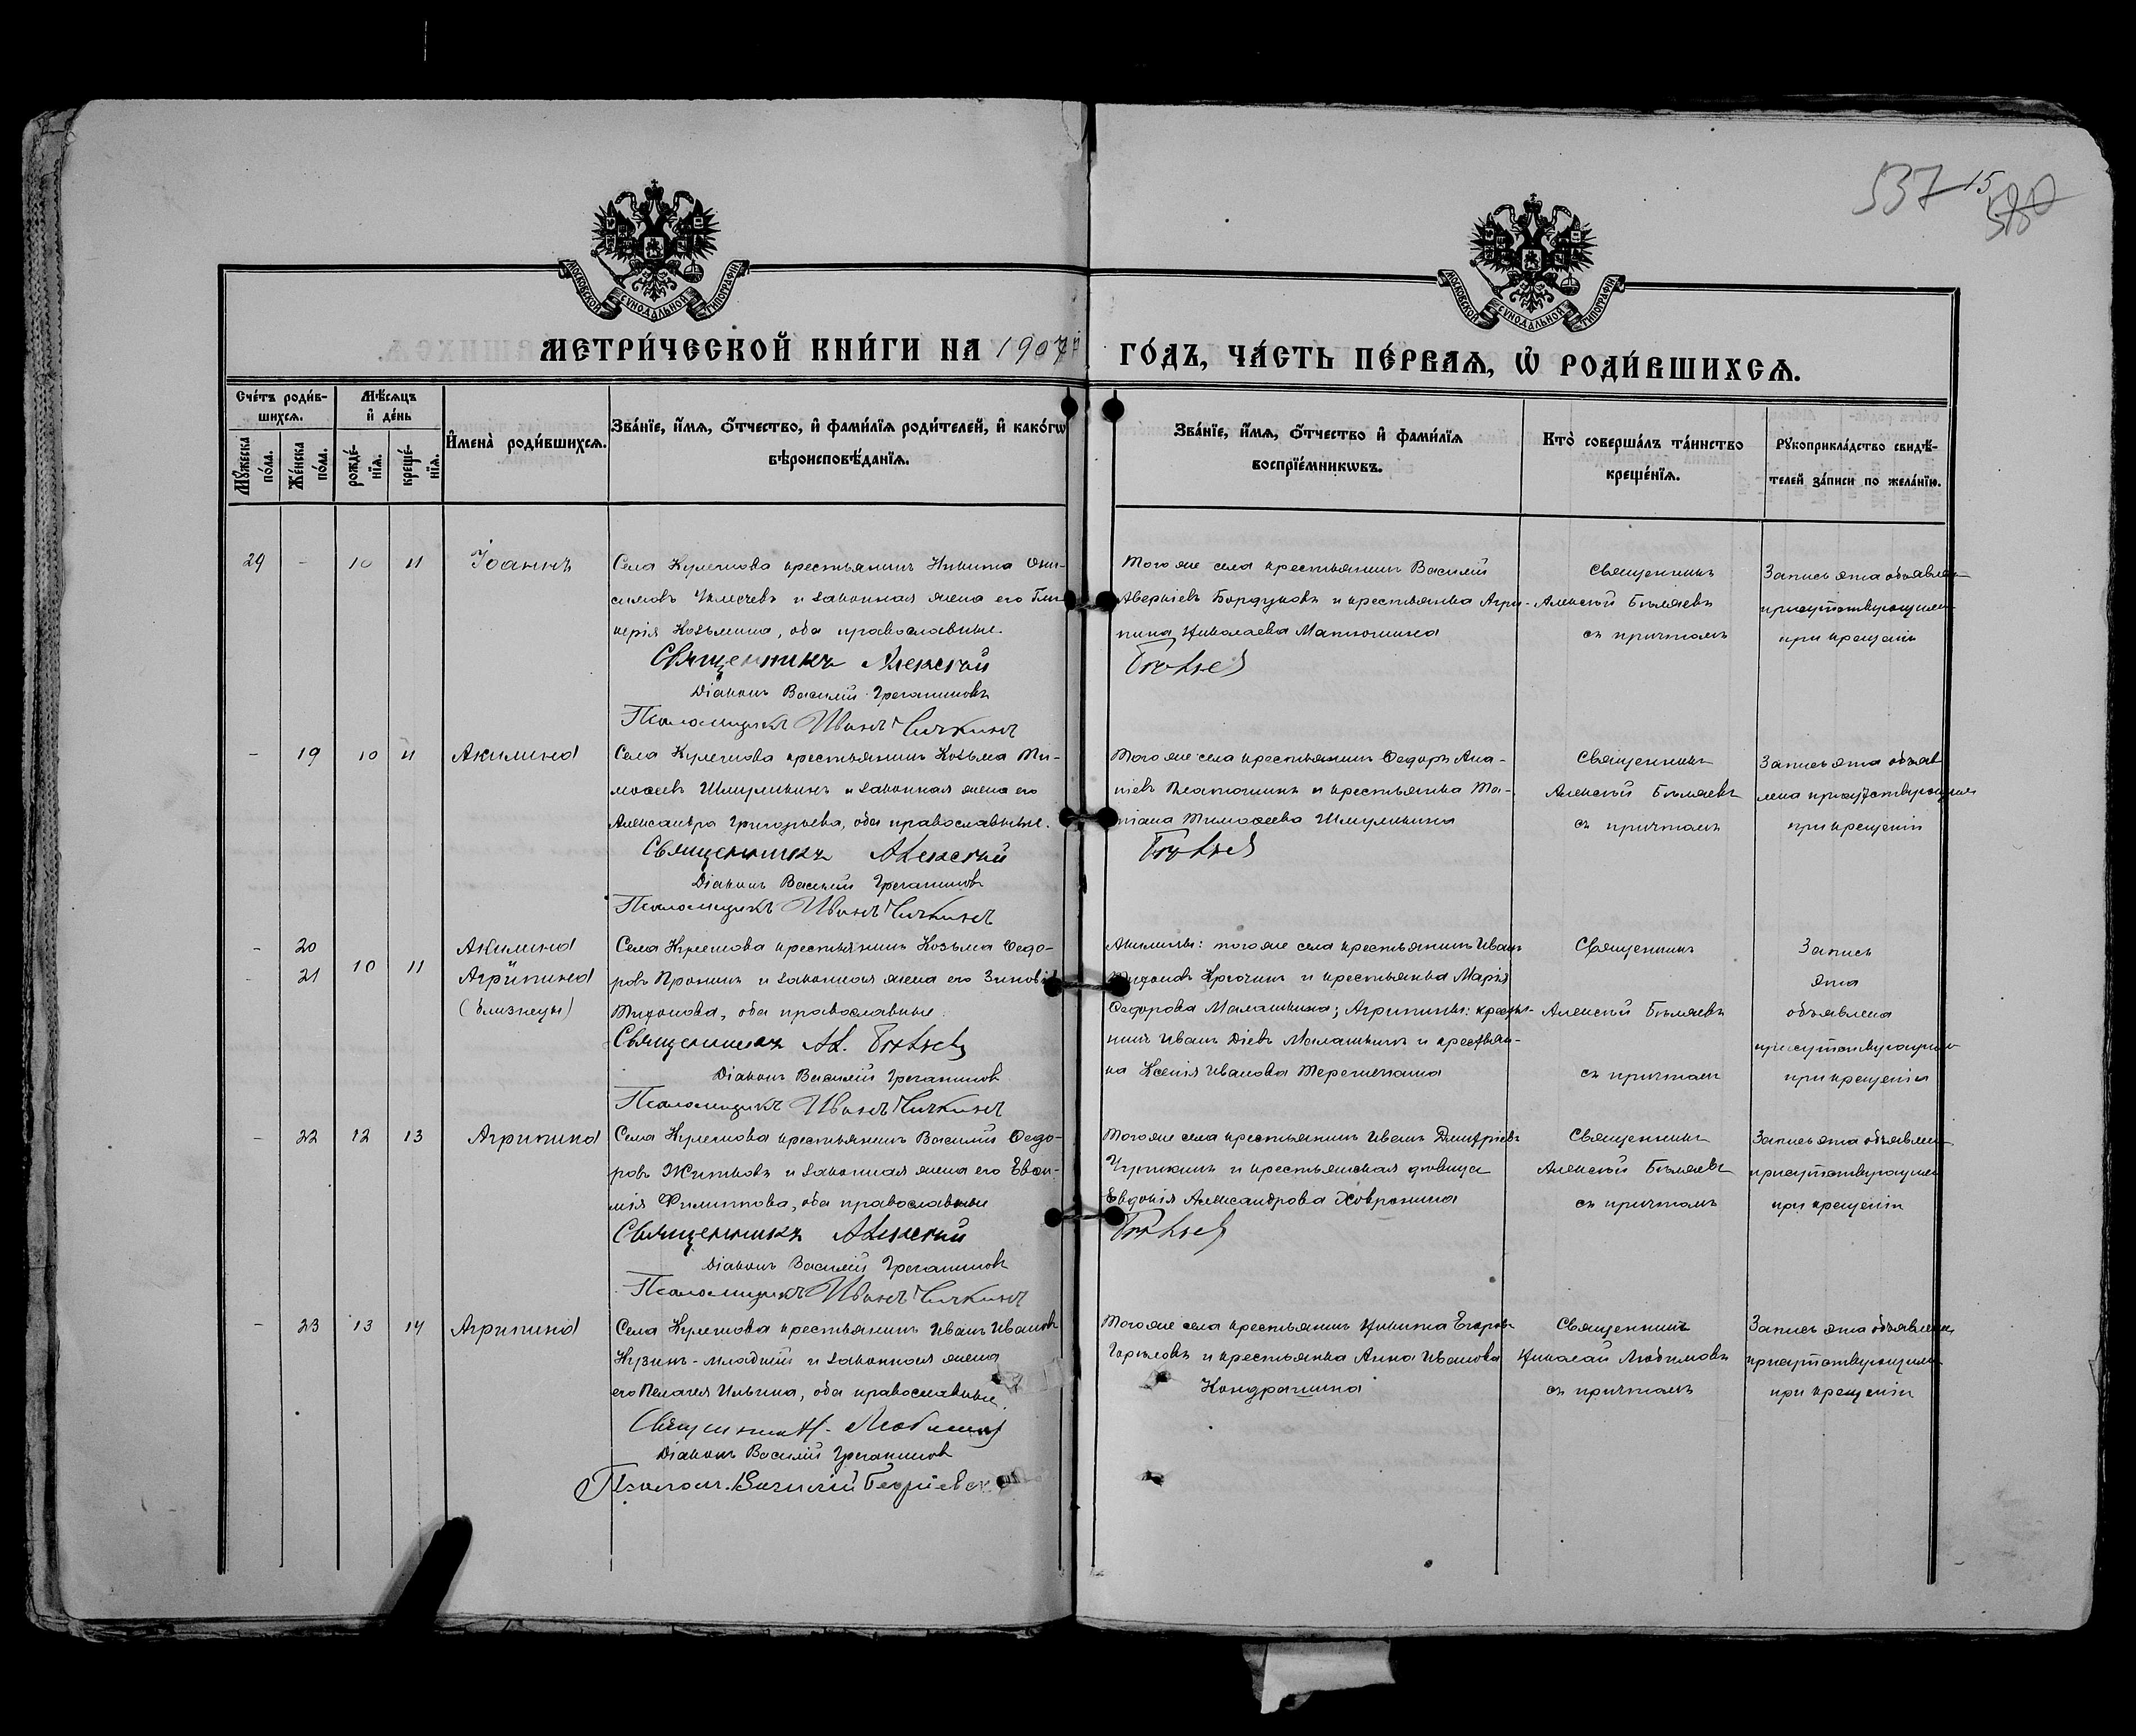 537 15
580
МОСКОВСКОЙ СѴНОДАЛЬНОЙ ТИПОГРАФІИ
МОСКОВСКОЙ СѴНОДАЛЬНОЙ ТИПОГРАФІИ
МЕТРИ́ЧЕСКОЙ КНИ́ГИ НА 1907й ГО́ДЪ, ЧА́СТЬ ПЕ́РВАѦ, Ѽ РОДИ́ВШИХСѦ.
Сче́тъ роди́в-
шихсѧ.
Мꙋ́жеска по́ла.
Же́нска по́ла.
Мѣ́сѧцъ
и҆ де́нь
рожде́-
нїѧ.
креще́-
нїѧ.
И҆мена̀ роди́вшихсѧ.
Зва́нїе, и҆́мѧ, ѻ҆́тчество, и҆ фами́лїѧ роди́телей, и҆ како́гѡ
вѣроисповѣ́данїѧ.
Зва́нїе, и҆́мѧ, ѻ҆́тчество и҆ фами́лїѧ
воспрїе́мникѡвъ.
Кто̀ соверша́лъ та́инство
креще́нїѧ.
Рꙋкоприкла́дство свидѣ́-
телей за́писи по жела́нїю.
29 - 10 11 Іоаннъ
Села Кулешова крестьянинъ Никита Они-
симовъ и законная жена его Гли-
керія Козьмина, оба православные.
Священникъ Алексій
Діаконъ Василій
Псаломщикъ Иванъ Чичкинъ
Того же села крестьянинъ Василій
Аверкіевъ Бордуковъ и крестьянка Агри-
пина Николаева Матюшина
Бѣляевъ
Священникъ
Алексій Бѣляевъ
съ причтомъ
Запись эта объявлен
присутствующимъ
при крещеніи
- 19 10 11 Акилина
Села Кулешова крестьянинъ Козьма Ти-
моѳеевъ Шмулькинъ и законная жена его
Александра Григорьева, оба православные.
Священникъ Алексій
Діаконъ Василій
Псаломщикъ Иванъ Чичкинъ
Того же села крестьянинъ Ѳедоръ Ана-
ніевъ Матюшинъ и крестьянка Та-
тіана Тимоѳеева Шмулькина
Бѣляевъ
Священникъ
Алексій Бѣляевъ
съ причтомъ
Запись эта объяв
лена присутствующимъ
при крещеніи
- 20 Акилина
- 21 10 11 Агрипина
(близнецы)
Села Кулешова крестьянинъ Козьма Ѳедо-
ровъ Пронинъ и законная жена его Зиновія
Тихонова, оба православные.
Священникъ Ал. Бѣляевъ
Діаконъ Василій
Псаломщикъ Иванъ Чичкинъ
Акилины: того же села крестьянинъ Иванъ
Тихоновъ Крючинъ и крестьянка Марія
Ѳедорова Малашкина; Агрипины: крестья-
нинъ Иванъ Діевъ Малашкинъ и крестьян-
ка Ксенія Иванова Терешечкина
Священникъ
Алексій Бѣляевъ
съ причтомъ
Запись
эта
объявлена
присутствующимъ
при крещеніи
- 22 12 13 Агрипина
Села Кулешова крестьянинъ Василій Ѳедо-
ровъ Житковъ и законная жена его Евѳи-
мія Филиппова, оба православные
Священникъ Алексій
Діаконъ Василій
Псаломщикъ Иванъ Чичкинъ
Того же села крестьянинъ Иванъ Дмитріевъ
Чурикинъ и крестьянская дѣвица
Евдокія Александрова Ховронина
Бѣляевъ
Священникъ
Алексій Бѣляевъ
съ причтомъ
Запись эта объявлен
присутствующимъ
при крещеніи
- 23 13 14 Агрипина
Села Кулешова крестьянинъ Иванъ Ивановъ
Кузинъ-младшій и законная жена
его Пелагея Ильина, оба православные.
Священникъ Н. Любимовъ
Діаконъ Василій
Псалом. Василій Георгіевск
Того же села крестьянинъ Никита Егоровъ
Горѣловъ и крестьянка Анна Иванова
Кондрашина
Священникъ
Николай Любимовъ
съ причтомъ
Запись эта объявлена
присутствующимъ
при крещеніи